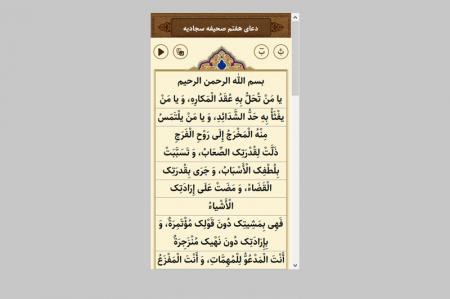 دعای هفتم صحیفه سجادیه
بسم الله الرحمن الرحیم
یا مَنْ تُحَلُّ بِهِ عُقَدُ الْمَکارِهِ، وَ یا مَنْ
یفْثَأُ بِهِ حَدُّ الشَّدَائِدِ، وَ یا مَنْ یلْتَمَسُ
مِنْهُ الْمَخْرَجُ إِلَی رَوْحِ الْفَرَجِ
ذَلَّتْ لِقُدْرَتِک الصِّعَابُ، وَ تَسَبَّبَتْ
بِلُطْفِک الْأَسْبَابُ، وَ جَرَی بِقُدْرَتِک
الْقَضَاءُ، وَ مَضَتْ عَلَی إِرَادَتِک
الْأَشْیاءُ
فَهِی بِمَشِیتِک دُونَ قَوْلِک مُؤْتَمِرَةٌ، وَ
بِإِرَادَتِک دُونَ نَهْیک مُنْزَجِرَةٌ
أَنْتَ الْمَدْعُوُّ لِلْمُهِمَّاتِ، وَ أَنْتَ الْمَفْزَعُ